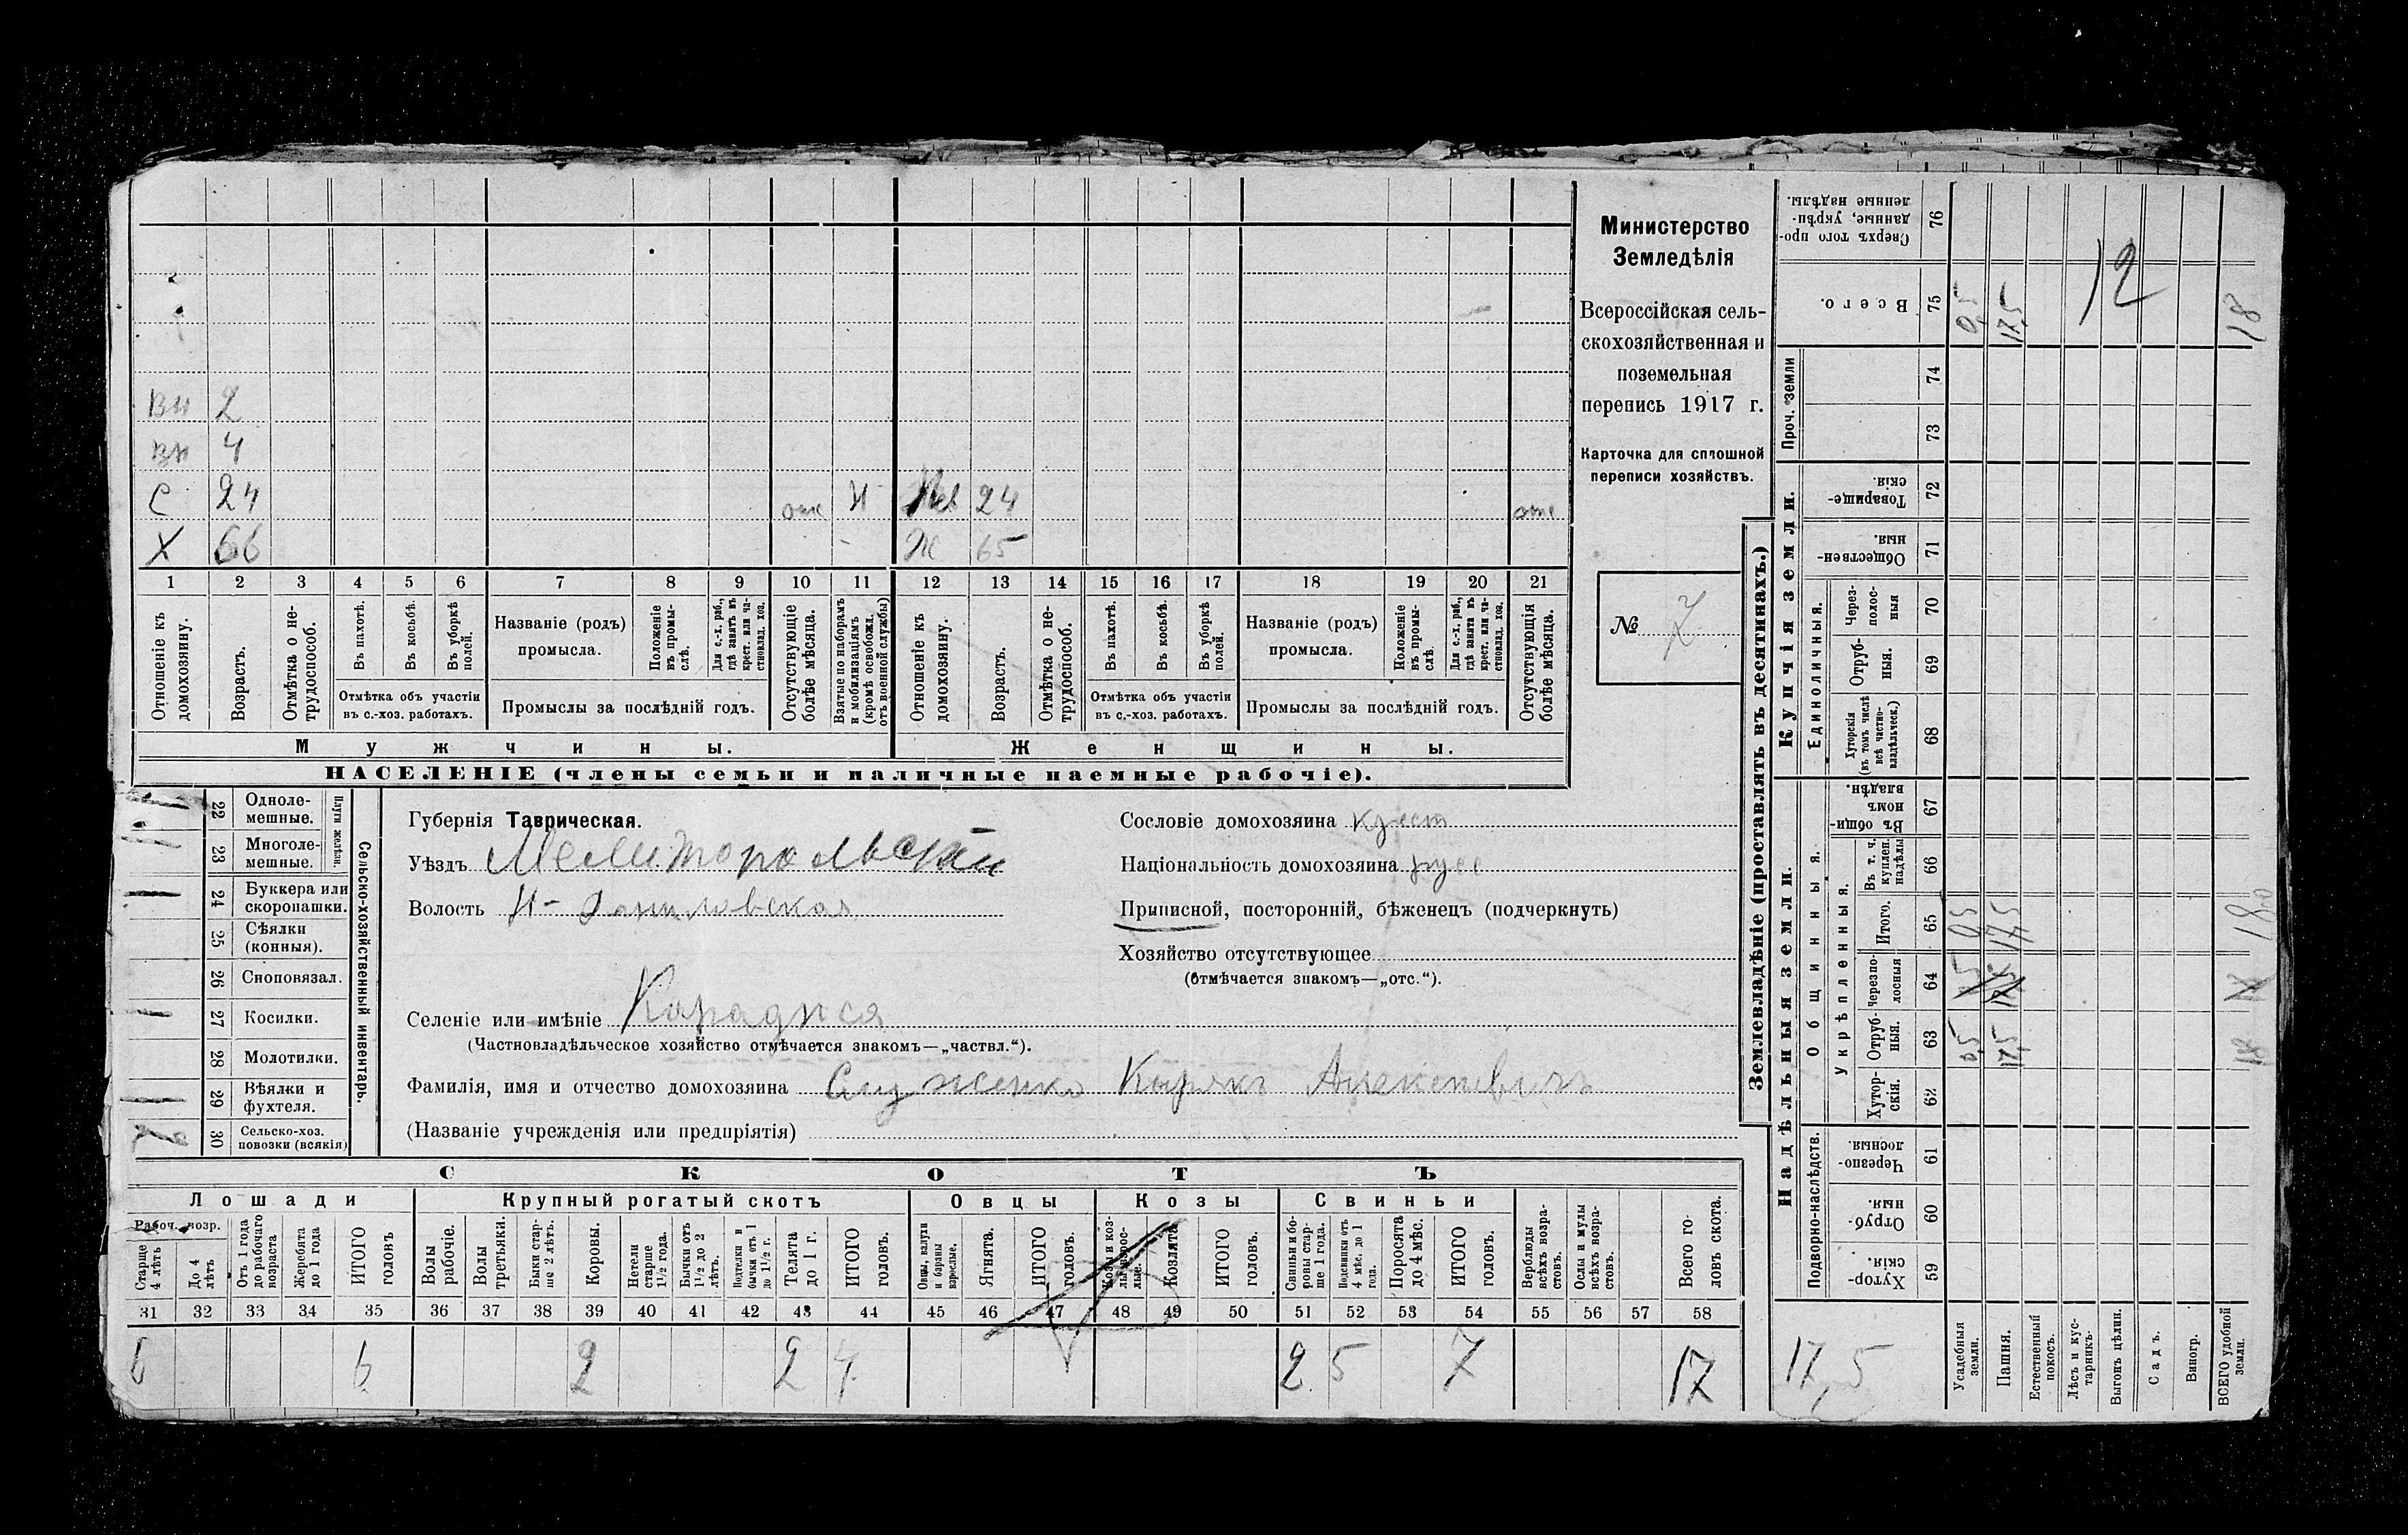 вн 2
вн 4
С 24 отс Н Нев 24 отс
Х 66 Ж 65
1 2 3 4 5 6 7 8 9 10 11 12 13 14 15 16 17 18 19 20 21
Отношеніе къ домохозяину.
Возрастъ.
Отмѣтка о не-
трудоспособ.
Въ пахотѣ.
Въ косьбѣ.
Въ уборкѣ
полей.
Отмѣтка объ участіи
въ с.-хоз. работахъ.
Названіе (родъ)
промысла.
Положеніе
въ промы-
слѣ.
Для с.-х. раб.,
гдѣ занятъ въ
крест. или ча-
стновлад. хоз.
Промыслы за послѣдній годъ.
Отсутствующіе
болѣе мѣсяца.
Взятые по наборамъ
и мобилизаціямъ
(кромѣ освобожд.
отъ военной службы)
Отношеніе къ
домохозяину.
Возрастъ.
Отмѣтка о не-
трудоспособ.
Въ пахотѣ.
Въ косьбѣ.
Въ уборкѣ
полей.
Отмѣтка объ участіи
въ с.-хоз. работахъ.
Названіе (родъ)
промысла.
Положеніе
въ промы-
слѣ.
Для с.-х. раб.,
гдѣ занята въ
крест. или ча-
стновлад. хоз.
Промыслы за послѣдній годъ.
Отсутствующія
болѣе мѣсяца.
Мужчины.
Женщины.
НАСЕЛЕНІЕ (члены семьи и наличные наемные рабочіе).
Министерство
Земледѣлія
Всероссійская сель-
скохозяйственная и
поземельная
перепись 1917 г.
Карточка для сплошной
переписи хозяйствъ.
№ 7
22 Одноле-
мешные.
23 Многоле-
мешные.
Плуги желѣзн.
24 Буккера или
скоропашки.
25 Сѣялки
(конныя).
26 Сноповязал.
27 Косилки.
28 Молотилки.
29 Вѣялки и
фухтеля.
30 Сельско-хоз.
повозки (всякія)
Сельско-хозяйственный инвентарь.
1
1
1
1
2
Губернія Таврическая.
Уѣздъ Мелитопольскій
Волость Н-Даниловская
Селеніе или имѣніе
(Частновладѣльческое хозяйство отмѣчается знакомъ—„частвл.“).
Фамилія, имя и отчество домохозяина Служенко Кирякъ Алексѣевичъ
(Названіе учрежденія или предпріятія)
Сословіе домохозяина крест
Національность домохозяина русс
Приписной, посторонній, бѣженецъ (подчеркнуть)
Хозяйство отсутствующее
(отмѣчается знакомъ—„отс.“).
СКОТЪ
Лошади
Крупный рогатый скотъ
Овцы
Козы
Свиньи
Рабоч. возр.
Старше
4 лѣтъ
До 4
лѣтъ
Отъ 1 года
до рабочаго
возраста
Жеребята
до 1 года
ИТОГО
головъ
Волы
рабочіе.
Волы
третьяки.
Быки стар-
ше 2 лѣтъ.
Коровы.
Нетели
старше
1½ года.
Бычки отъ
1½ до 2
лѣтъ.
Подтелки и
бычки отъ 1
до 1½ г.
Телята
до 1 г.
ИТОГО
головъ.
Овцы, валухи
и бараны
взрослые.
Ягнята.
ИТОГО
головъ.
Козы и коз-
лы взрос-
лые.
Козлята.
ИТОГО
головъ.
Свиньи и бо-
ровы стар-
ше 1 года.
Подсвинки отъ
4 мѣс. до 1
года.
Поросята
до 4 мѣс.
ИТОГО
головъ.
Верблюды
всѣхъ возра-
стовъ.
Ослы и мулы
всѣхъ возра-
стовъ.
Всего го-
ловъ скота.
31 32 33 34 35 36 37 38 39 40 41 42 43 44 45 46 47 48 49 50 51 52 53 54 55 56 57 58
6 6 2 2 4 2 5 7 17
Землевладѣніе (проставлять въ десятинахъ.)
Надѣльныя земли.
Купчія земли.
Проч. земли
Подворно-наслѣдств.
Общинныя.
Укрѣпленныя.
Единоличныя.
Сверхъ того про-
данные, укрѣп-
ленные надѣлы.
76
Всего.
75
74
73
Товарище-
скія.
72
Обществен-
ныя.
71
Через-
полос-
ныя
70
Отруб-
ныя.
69
Хуторскія
(въ томъ числѣ
всѣ частно-
владѣльческ.)
68
Въ общи-
номъ
владѣн.
67
Въ т. ч.
куплен.
надѣлы
66
Итого.
65
Черезпо-
лосныя
64
Отруб-
ныя.
63
Хутор-
скія.
62
Черезпо-
лосныя.
61
Отруб-
ныя.
60
Хутор-
скія.
59
0,5 17,5 12 18
0,5 17,5 18,0
0,5 17,5 18
17,5
Усадебныя
земли.
Пашня.
Естественный
покосъ.
Лѣсъ и кус-
тарникъ.
Выгонъ цѣлин.
Садъ.
Виногр.
ВСЕГО удобной
земли.